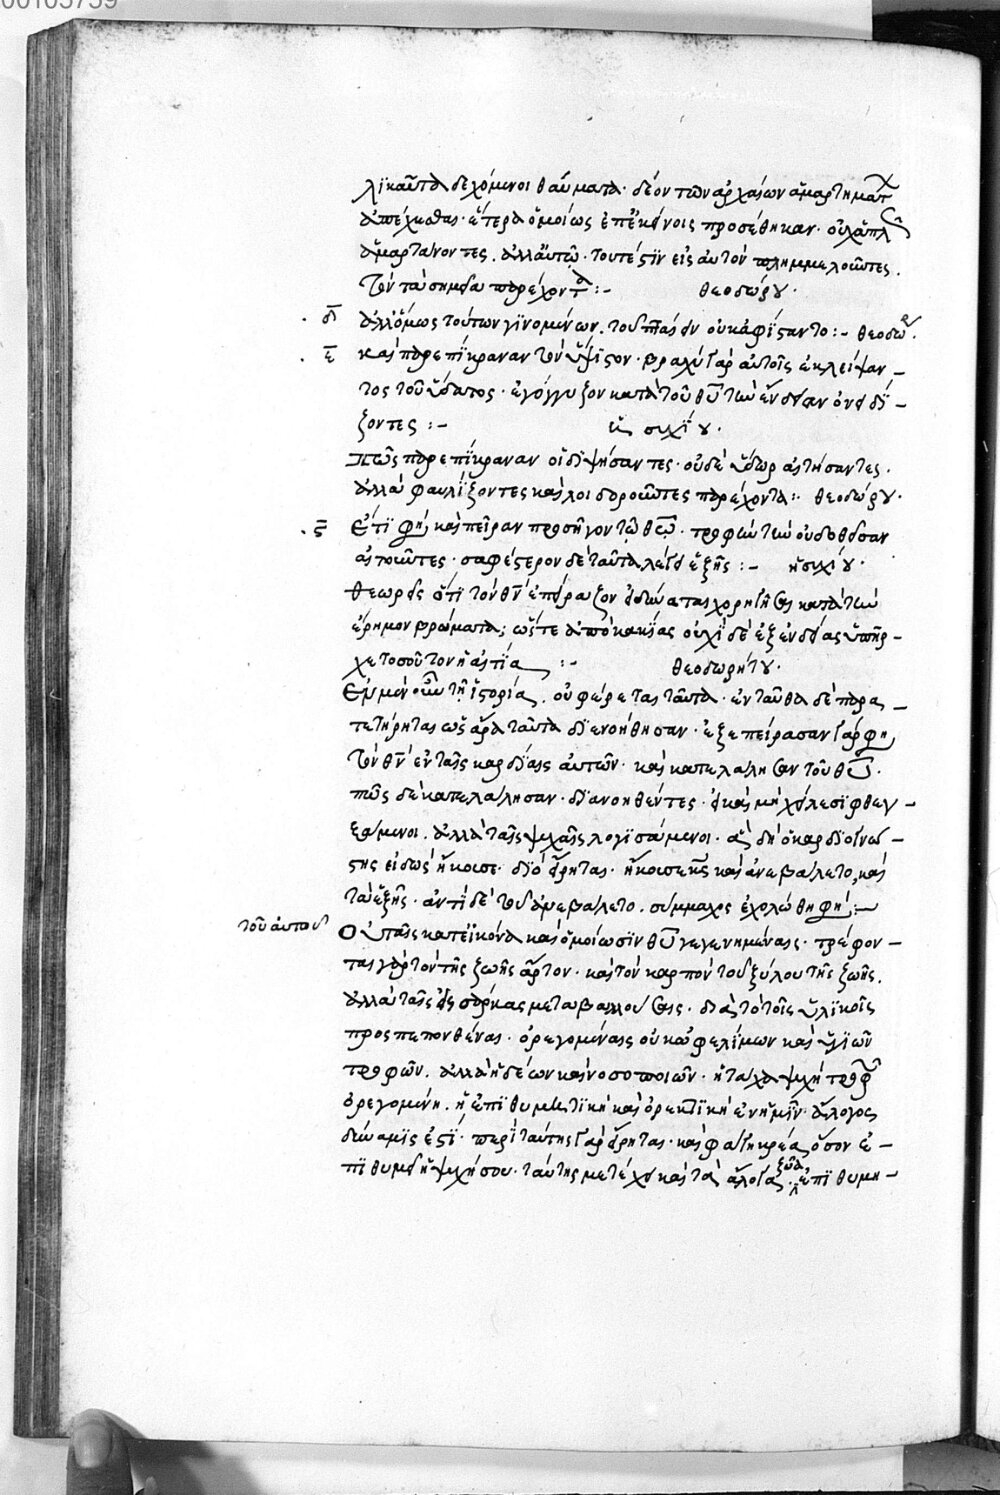 00105759
λικαῦτα δεχόμενοι θαύματα· δέον τῶν ἀρχαίων ἁμαρτημάτ
ἀπέχεσθαι· ἕτερα ὁμοίως ἐπ' ἐκείνοις προσέθηκαν· οὐχ ἁπλ
ἁμαρτάνοντες. ἀλλ' αὐτῷ· τουτέστιν εἰς αὐτὸν πλημμελοῦντες.
τὸν τὰ σημεῖα παρέχοντα :- θεοδώρου·
δ ἀλλ' ὅμως τούτων γινομένων. τοῦ πταίειν οὐκ ἀφίσταντο :- θεοδώρ.
ε καὶ παρεπίκραναν τὸν ὕψιστον· βραχὺ γὰρ αὐτοῖς ἐκλείψαν-
τος τοῦ ὕδατος· ἐγόγγυζον κατὰ τοῦ θυ τὴν ἔνδειαν ὀνειδί-
ζοντες :- ἡσιχίου·
Πῶς παρεπίκραναν οἱ διψήσαντες· οὐδὲ ὕδωρ αἰτήσαντες·
ἀλλὰ φαυλίζοντες καὶ λοιδοροῦντες παρέχοντα: θεοδώρου·
ς Ἔτι φη καὶ πεῖραν προσῆγον τῷ θεῷ· τροφὴν τὴν οὐ δοθεῖσαν
αἰτοῦντες· σαφέστερον δὲ ταῦτα λέγει ἑξῆς :- ἡσιχίου·
Θεωρεῖς ὅτι τὸν θν ἐπείραζον εἰ δύναται χορηγῆσαι κατὰ τὴν
ἔρημον βρώματα; ὥστε ἀπὸ κακίας οὐχὶ δὲ ἐξ ἐνδείας ὑπῆρ-
χε τοσοῦτον ἡ αἰτία :- θεοδωρήτου·
Ἐν μὲν οὖν τῇ ἱστορίᾳ. οὐ φέρεται ταῦτα· ἐνταῦθα δὲ παρα-
τετήρηται ὡς ἄρα ταῦτα διενοήθησαν· ἐξεπείρασαν γάρ φη
τὸν θν ἐν ταῖς καρδίαις αὐτῶν· καὶ κατελάλησαν τοῦ θυ·
πῶς δὲ κατελάλησαν· διανοηθέντες· εἰ καὶ μὴ χείλεσι φθεγ-
ξάμενοι. ἀλλὰ ταῖς ψυχαῖς λογισάμενοι· ἃ δὴ ὁ καρδιογνώ-
στης εἰδὼς ἤκουσε· διὸ εἴρηται· ἤκουσε κς καὶ ἀνεβάλετο, καὶ
τὰ ἑξῆς· ἀντὶ δὲ τοῦ ἀνεβάλετο. σύμμαχος ἐχολώθη φησί :-
τοῦ αὐτοῦ Ὁ ταῖς κατ' εἰκόνα καὶ ὁμοίωσιν θυ γεγενημέναις· τρέφον-
ται γὰρ τὸν τῆς ζωῆς ἄρτον· καὶ τὸν καρπὸν τοῦ ξύλου τῆς ζωῆς.
ἀλλὰ ταῖς εἰς σάρκας μεταβαλλούσαις· διὰ τὸ τοῖς ὑλικοῖς
προσπεπονθέναι· ὀρεγομέναις οὐκ ὠφελίμων καὶ ὑγιῶν
τροφῶν. ἀλλὰ ἡδέων καὶ νοσοποιῶν· ἢ τάχα ψυχὴ τροφῶν
ὀρεγομένη. ἡ ἐπιθυμητικὴ καὶ ὀρεκτικὴ ἐν ἡμῖν· ἄλογος
δύναμις ἐστί· περὶ ταύτης γὰρ εἴρηται· καὶ φάγῃ κρέα ὅσον ἐ-
πιθυμεῖ ἡ ψυχή σου· ταύτης μετέχει καὶ τὰ ἄλογα ζῶα. ἐπιθυμη-